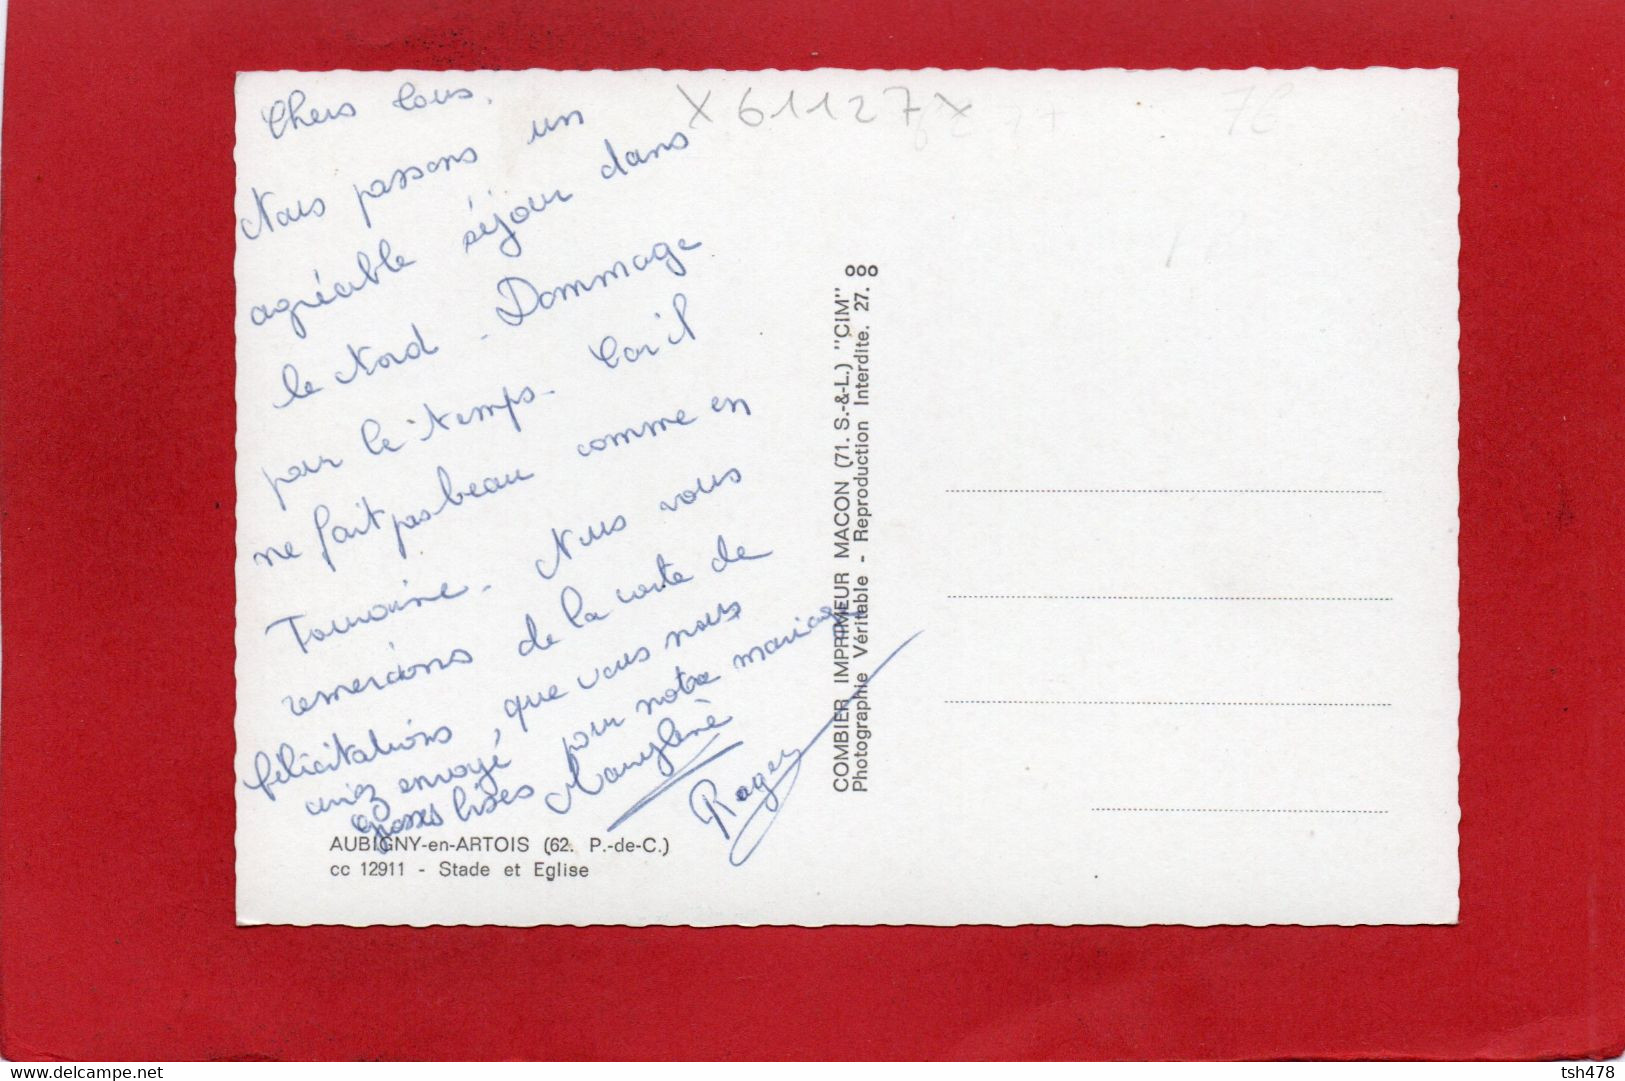 Chers tous.
Nous passons un
agréable séjour dans
le Nord. Dommage
pour le temps. Car il
ne fait pas beau comme en
Touraine. Nous vous
remercions de la carte de
félicitations, que vous nous
aviez envoyé pour notre mariage
Grosses bises Maryléne
Roger
X 61127 X
76
AUBIGNY-en-ARTOIS (62. P.-de-C.)
cc 12911 - Stade et Eglise
COMBIER IMPRIMEUR MACON (71. S.-&-L.) "CIM"
Photographie Véritable - Reproduction Interdite. 27.
Delcampe.net
tsh478